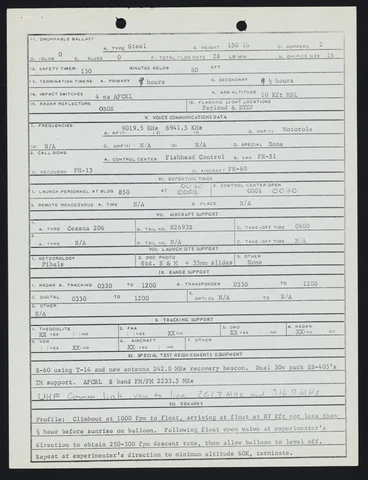 11. DROPPABLE BALLAST
A. TYPE Steel B. WEIGHT 150 lb C. HOPPERS 2
D. GLOW 0 E. SLUGS 0 F. TOTAL FLOW RATE 28 LB/MIN G. ORIFICE SIZE 16
12. SAFETY TIMER: 150 MINUTES BELOW 60 KFT
13. TERMINATION TIMERS: A. PRIMARY 9 hours B. SECONDARY 9 ½ hours
14. IMPACT SWITCHES 4 ea AFCRL A. ARM ALTITUDE 10 Kft MSL
15. RADAR REFLECTORS OSGS 16. FLASHING LIGHT LOCATIONS Payload & STEF
V. VOICE COMMUNICATIONS DATA
1. FREQUENCIES 9019.5 KHz 6941.5 KHz
A. HF(1) B. VHF(1) Motorola
(2) N/A C. UHF(1) N/A (2) N/A D. SPECIAL None
2. CALL SIGNS A. CONTROL CENTER Fishhead Control B. VAN FH-51
C. RECOVERY FH-13 D. AIRCRAFT FH-60
VI. REPORTING TIMES
1. LAUNCH PERSONNEL AT BLDG 850 AT 0030 0001 2. CONTROL CENTER OPEN 0001 0030
3. REMOTE RENDEZVOUS A. TIME N/A B. LOCATION N/A
VII. AIRCRAFT SUPPORT
1. A. TYPE Cessna 206 B. TAIL NO. N2693X C. TAKE-OFF TIME 0600
2. A. TYPE N/A B. TAIL NO. N/A C. TAKE-OFF TIME N/A
VIII. LAUNCH SITE SUPPORT
1. METEOROLOGY Pibals 2. DOC PHOTO Std. B & W + 35mm slides 3. OTHER None
IX. RANGE SUPPORT
1. RADAR A. TRACKING 0330 TO 1200 B. TRANSPONDER 0330 TO 1200
C. DIGITAL 0330 TO 1200 2. OPTICS N/A TO N/A
3. OTHER N/A
X. TRACKING SUPPORT
1. THEODOLITE XX YES NO 2. FAA YES XX NO 3. GMD XX YES NO 4. RADAR XX YES NO
5. VOR YES XX NO 6. AIRCRAFT XX YES NO 7. OTHER
XI. SPECIAL TEST REQUIREMENTS EQUIPMENT
B-60 using T-14 and new antenna 242.0 MHz recovery beacon. Dual 30v pack SS-405's
TM support. AFCRL S band FM/FM 2233.5 MHz
UHF Comm link van to line 261.7 MHz and 316.7 MHz
XII. REMARKS
Profile: Climbout at 1000 fpm to float, arriving at float at 87 Kft not less than
½ hour before sunrise on balloon. Following float open valve at experimenter's
direction to obtain 250-300 fpm descent rate, then allow balloon to level off.
Repeat at experimenter's direction to minimum altitude 60K, terminate.